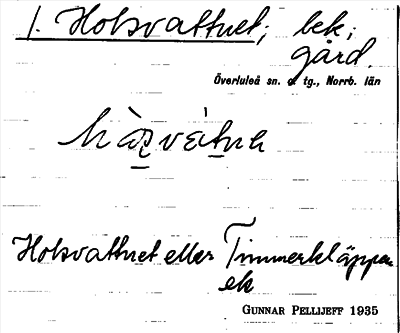 1. Holsvattnet; bek.;
gård.
Överluleå sn. o. tg., Norrb. län
Holsvattnet eller Timmerkläppen
ek
GUNNAR PELLIJEFF 1935